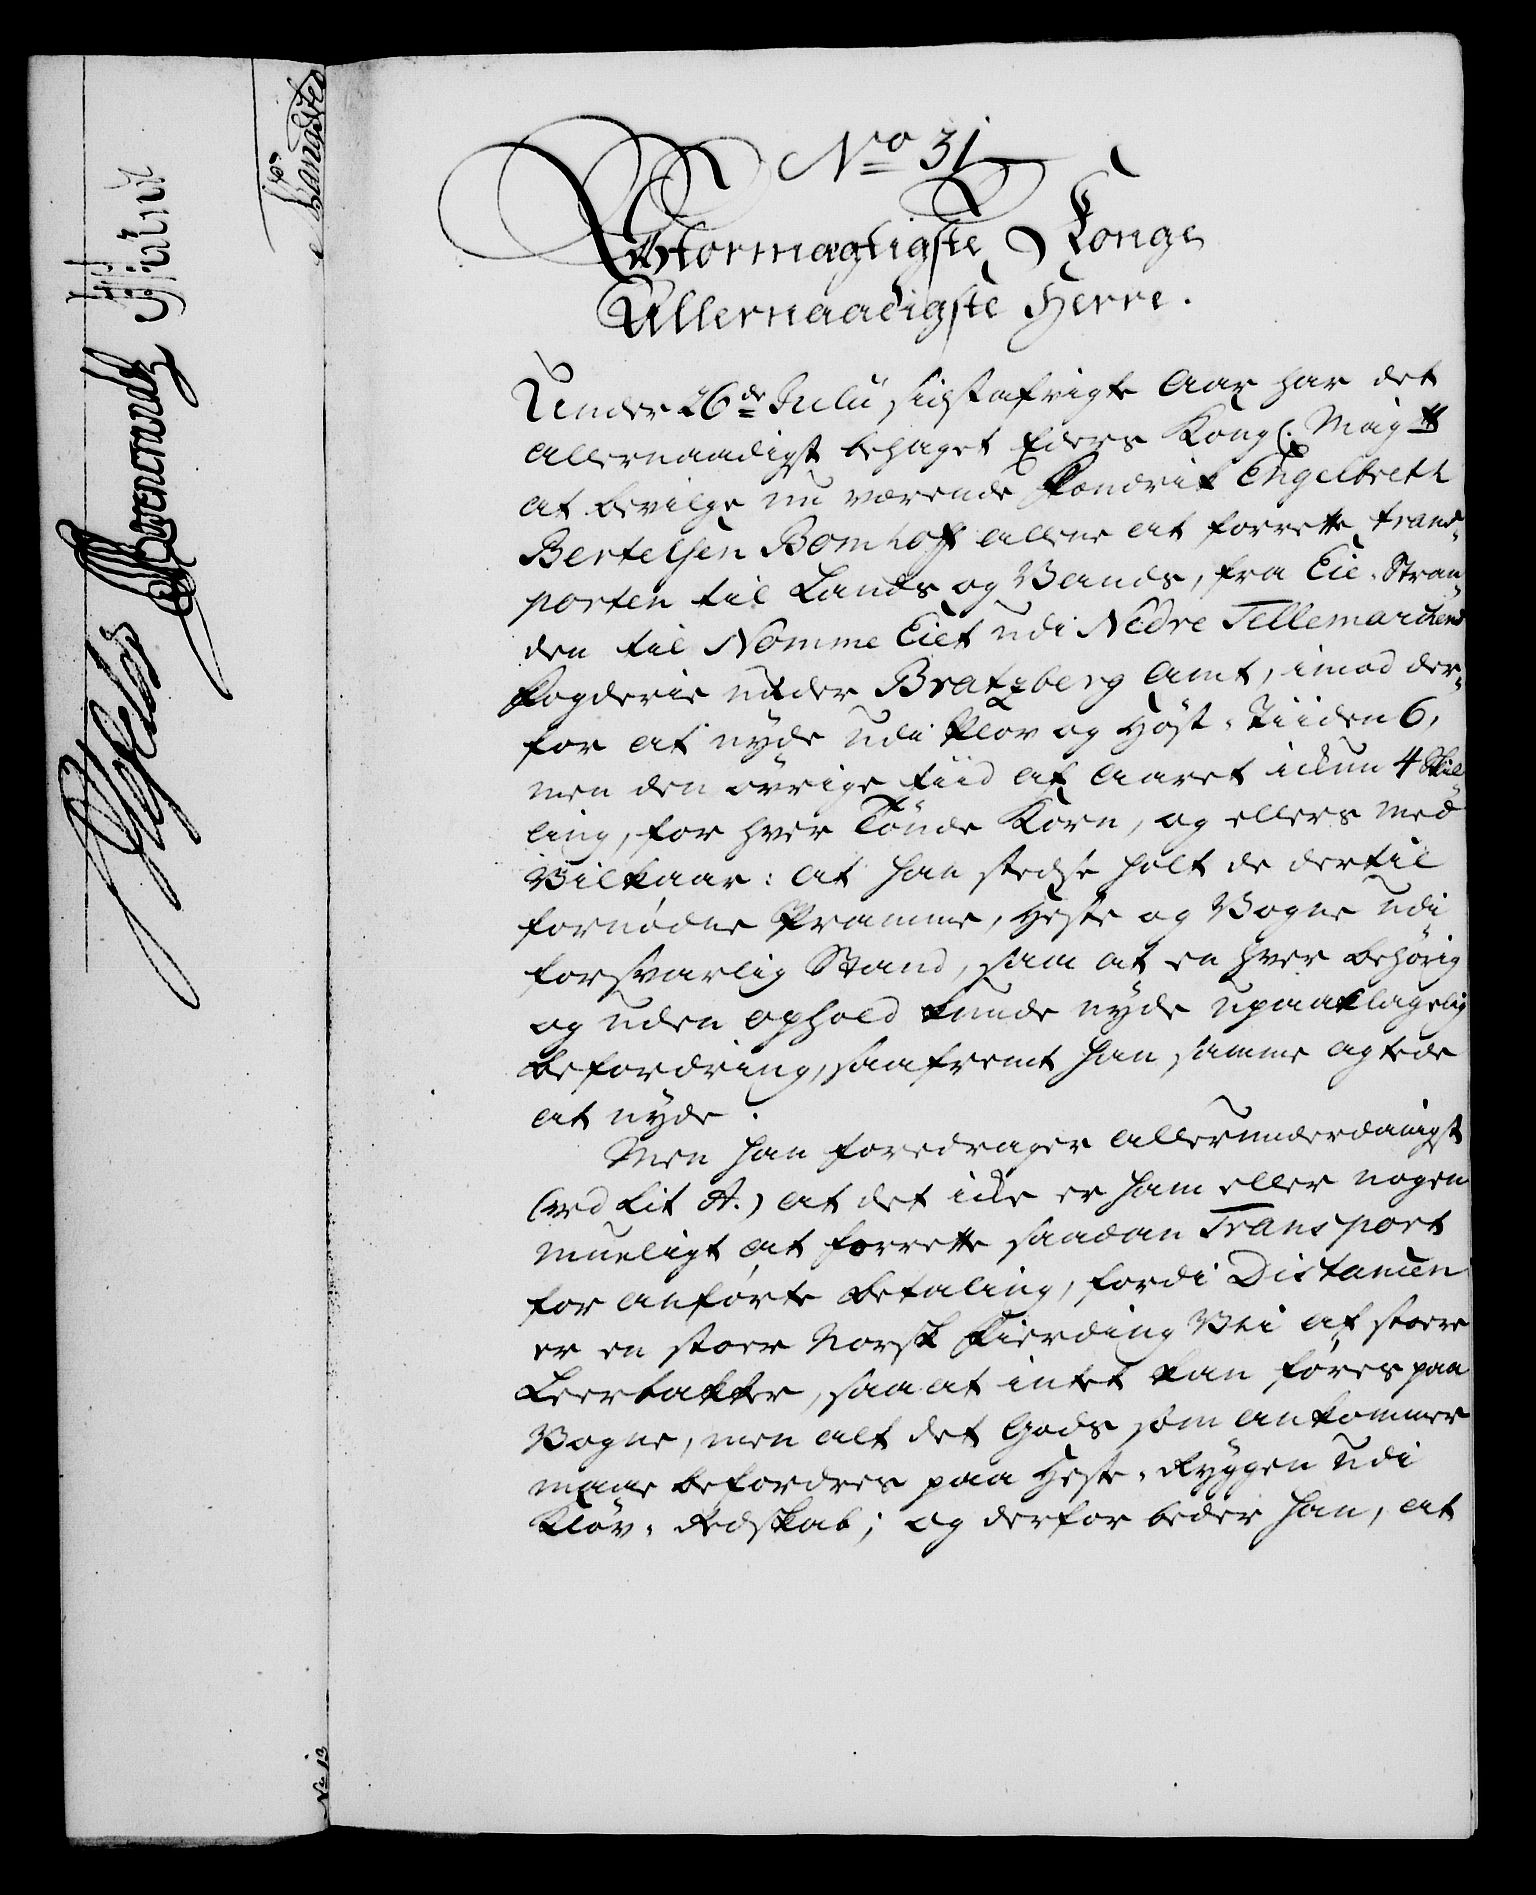 No 31
Stormægtigste Konge
Allernaadigste Herre.
Under 26de Julii sidstafvigte Aar har det
allernaadigst behaget Eders Kongl. Maytt
at bevilge nu værende Fændrik Engelbreth
Bertelsen Bomhoff allene at forrette trans-
porten til Lands og Vands, fra Eie-Stran-
den til Nomme Eiet udi Nedre Tellemarckens
Fogderie under Bratzberg Amt, imod der-
for at nyde udi Vaar og Høst-Tiiden 6,
men den øvrige tiid af Aaret ickun 4 Skil
ling, for hver Tønde Korn, og ellers med
Vilkaar: at han stedse holt de dertil
fornødne Pramme, Heste og Vogne udi
forsvarlig Stand, saa at en hver behørig
og uden ophold kunde nyde upaaklagelig
befordring, saafremt han samme agtede
at nyde.
Men han foredrager allerunderdanigst
(ved Lit A.) at det icke er ham eller nogen
mueligt at forrette saadan Transport
for anførte betaling, fordi Distancen
er en stoer Norsk Fierding Vei af stoere
Leerbakker, saa at intet kan føres paa
Vogne, men alt det Gods som ankommer
maae befordres paa Heste-Ryggen udi
Kløv-Redskab; og derfor beder han, at
No 13